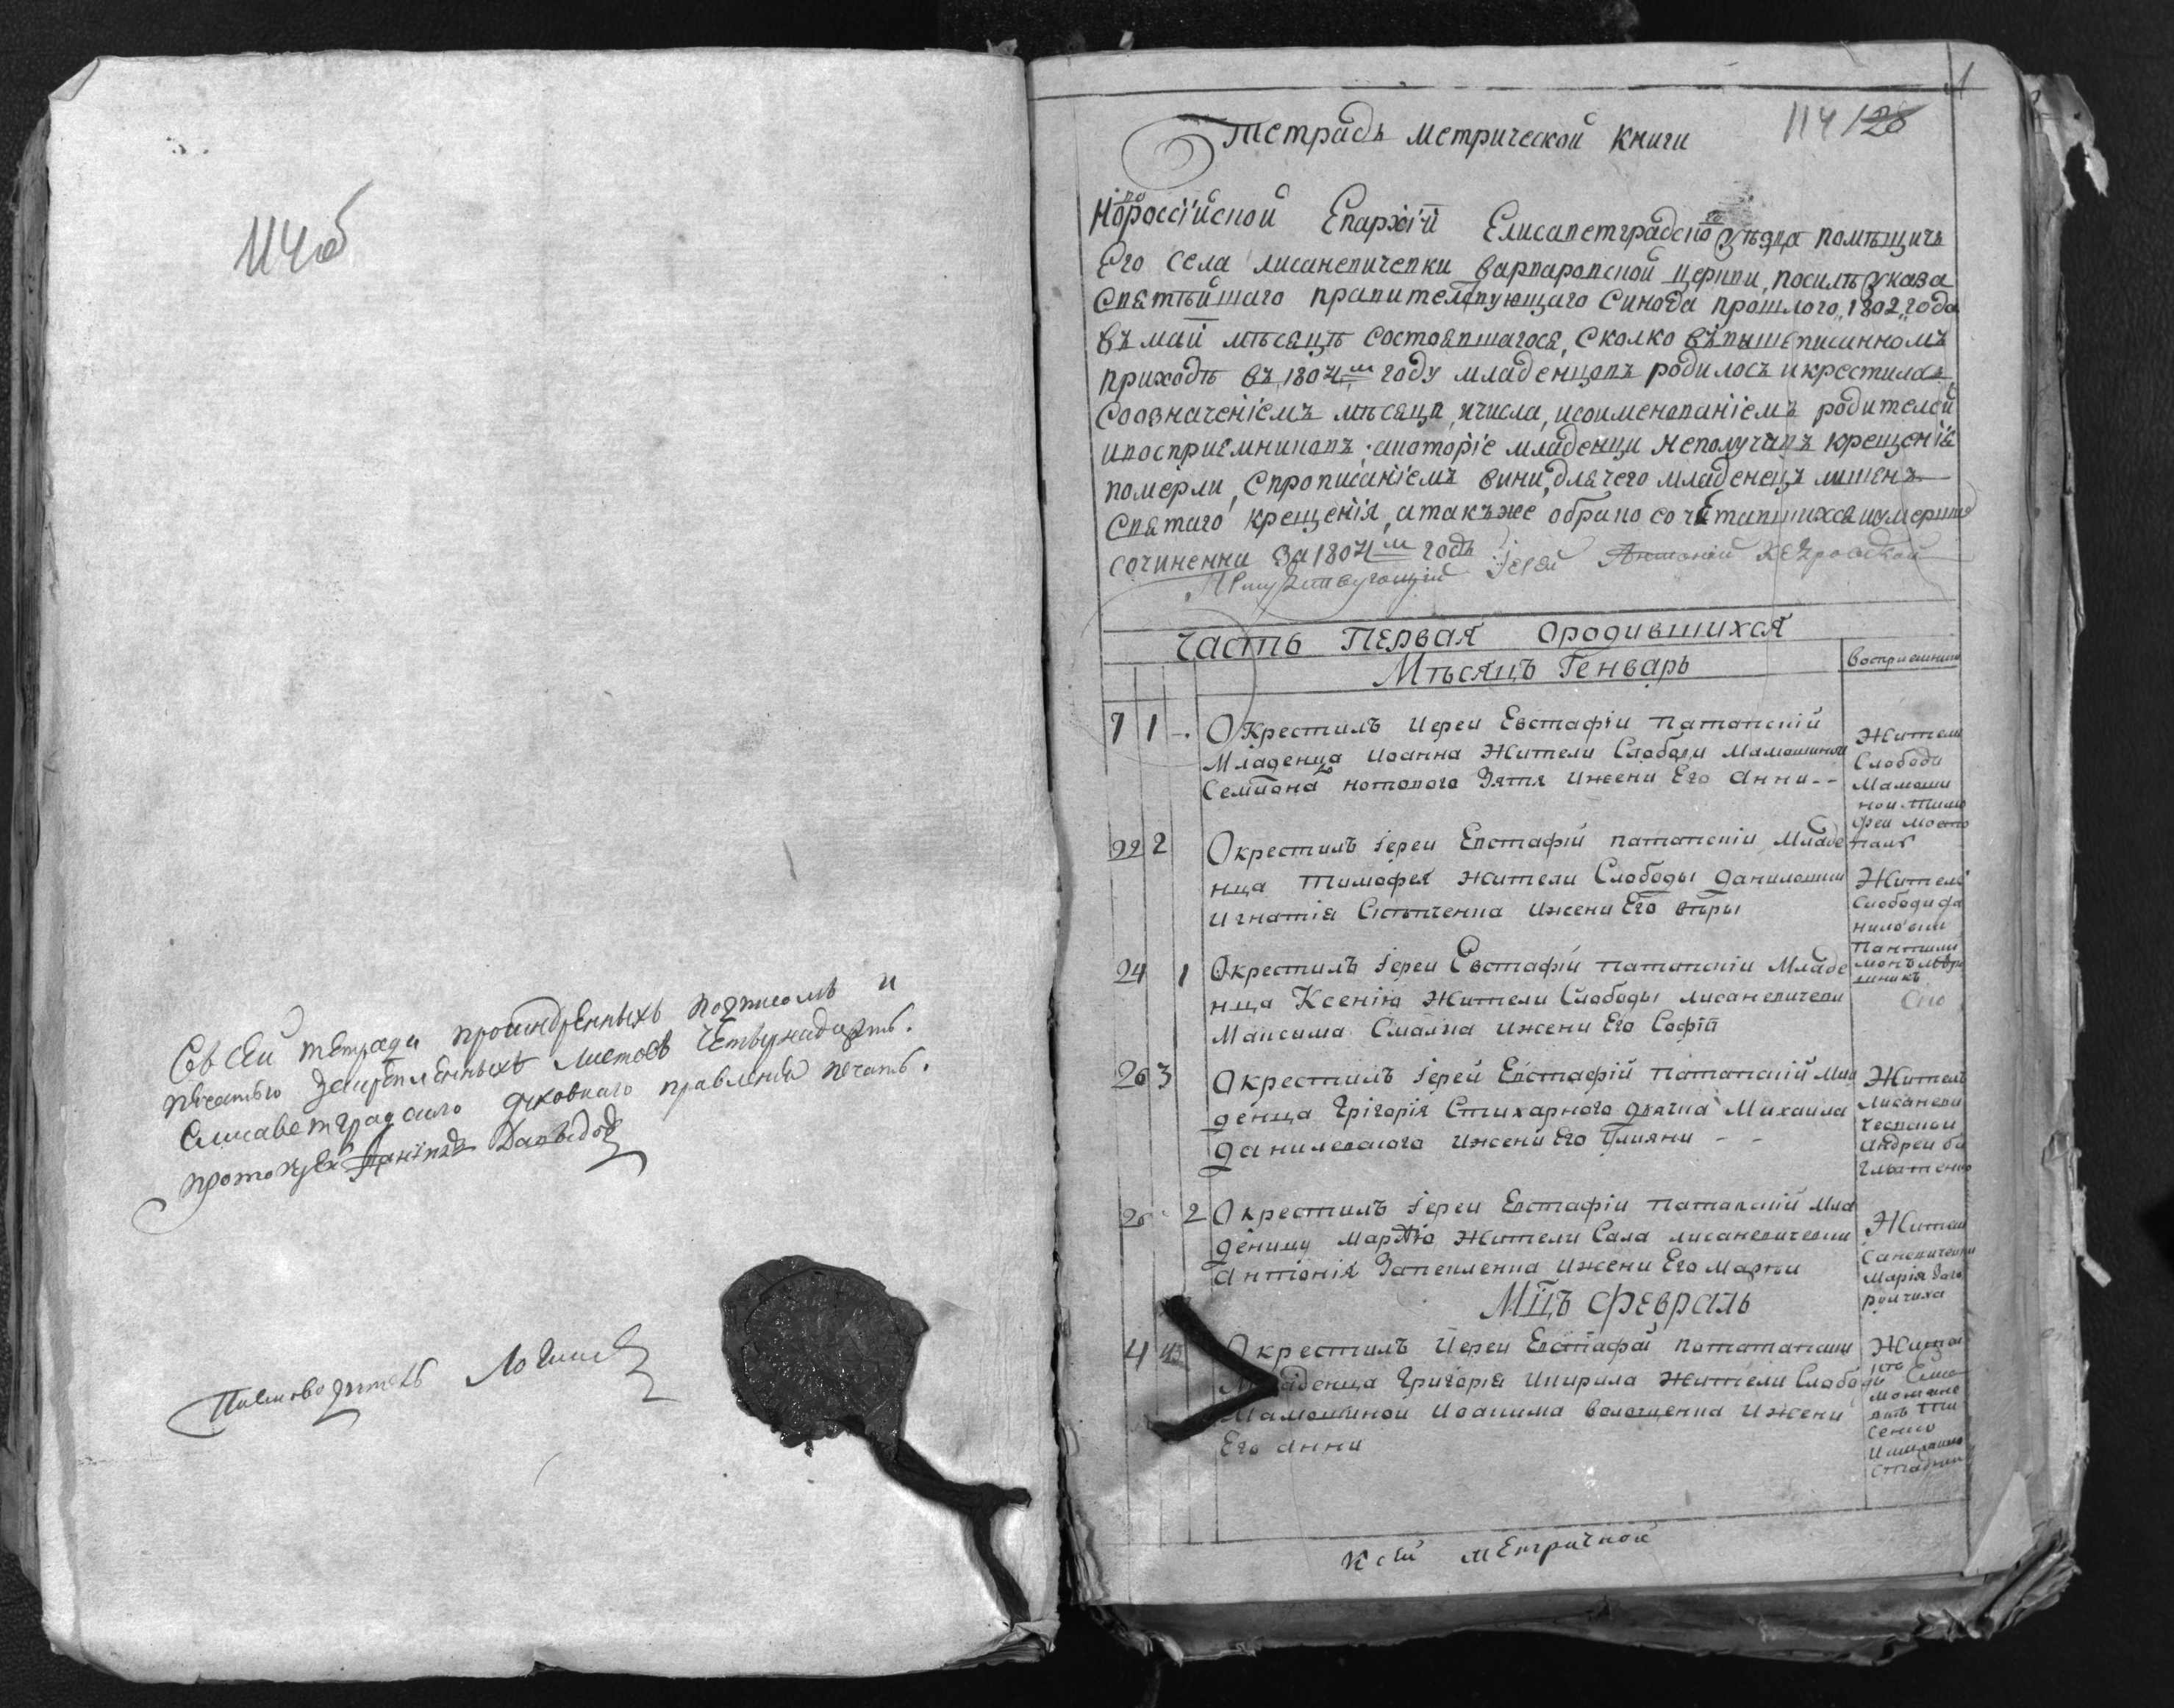 114об
Въ сей тетради прошнуренныхъ подписомъ и
печатью закрѣпленныхъ листовъ Четырнадцать.
Елисаветградского духовнаго правленія печать.
протоіерей Даніилъ Давыдовъ
Писмоводитель
1
114 128
Тетрадь метрической книги
Новороссійской Епархіи Елисаветградского уѣзда помѣщичь
Его села лисаневичевки варваровской церкви, посилѣ указа
Святѣйшаго правителствующаго Синода прошлого 1802 года
въ маи мѣсяцѣ состоявшагося, сколко въвышеписанномъ
приходѣ въ 1804м году младенцовъ родилось икрестилось
Соозначеніемъ мѣсяца, ичисла, исоименованіемъ родителей
ивосприемниковъ, акоторіе младенци неполучивъ крещенія
померли, Спрописаніемъ вини, длячего младенецъ лишенъ
Святаго крещенія, атакъже обрако сочетавшихся иумершихъ
сочинении За 1804м годъ
Іерей Антоній
Часть Первая Ородившихся
Мѣсяцъ Генварь
восприемники
7 1 - Окрестилъ Иереи Евстафіи Патапскій
Младенца Иоанна Жители Слободи Мамошиной
Семиона котового Зятя Ижени Его Анни - -
Жители
Слободи
Мамоши
ной Тимо
фей
22 2 Окрестилъ Іереи Евстафій патапскіи Младе
нца Тимофея жители Слободы даниловки
Игнатія Ижени Его вѣры
Житель
Слободи да
ниловки
Пантили
монъ
24 1 Окрестилъ Іереи Евстафіи патапскіи Младе
нца Ксенію Жители Слободы лисаневичевки
Максима Ижени Его Софіи
26 3 Окрестилъ Іерей Евстафій патапскій Мла
денца Григорія Стихарного дячка Михаила
Данилевского Ижени Его Улияни - -
Житель
Лисаневи
чевской
Андреи
26 2 Окрестилъ Іереи Евстафіи патапскій Мла
деницу Марѳу Жители Села лисаневичевки
Антонія Ижени Его Марѳи
Саневичевки
Марія
Мцъ Февраль
4 Окрестилъ Иереи Евстафій
Младенца Григорія Икирила жители Слободы
Мамошиной Иоакима волощенка Ижени
Его Анни
Ксей метричной